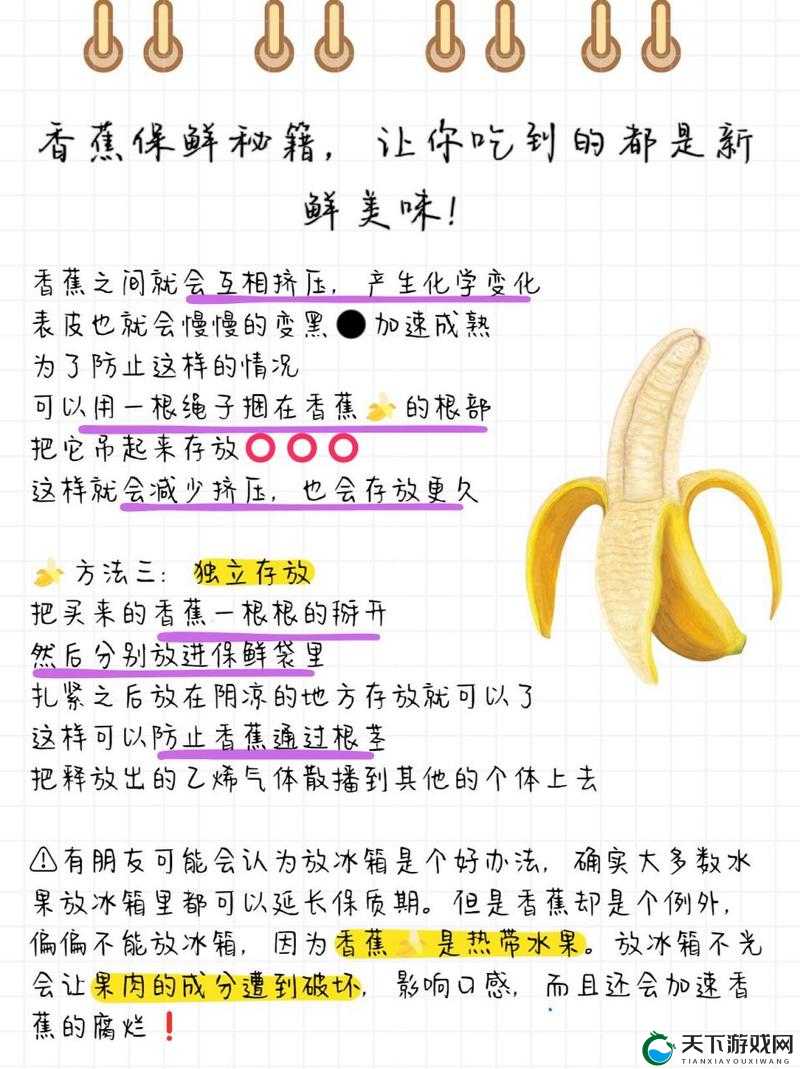 香蕉保鲜秘籍，让你吃到的都是新
鲜美味！
香蕉之间就会互相挤压，产生化学变化
表皮也就会慢慢的变黑⚫加速成熟
为了防止这样的情况
可以用一根绳子捆在香蕉🍌的根部
把它吊起来存放⭕⭕⭕
这样就会减少挤压，也会存放更久
🍌方法三：独立存放
把买来的香蕉一根根的掰开
然后分别放进保鲜袋里
扎紧之后放在阴凉的地方存放就可以了
这样可以防止香蕉通过根茎
把释放出的乙烯气体散播到其他的个体上去
⚠有朋友可能会认为放冰箱是个好办法，确实大多数水
果放冰箱里都可以延长保质期。但是香蕉却是个例外，
偏偏不能放冰箱，因为香蕉🍌是热带水果。放冰箱不光
会让果肉的成分遭到破坏，影响口感，而且还会加速香
蕉的腐烂❗
天下游戏网
TIANXIAYOUXIWANG